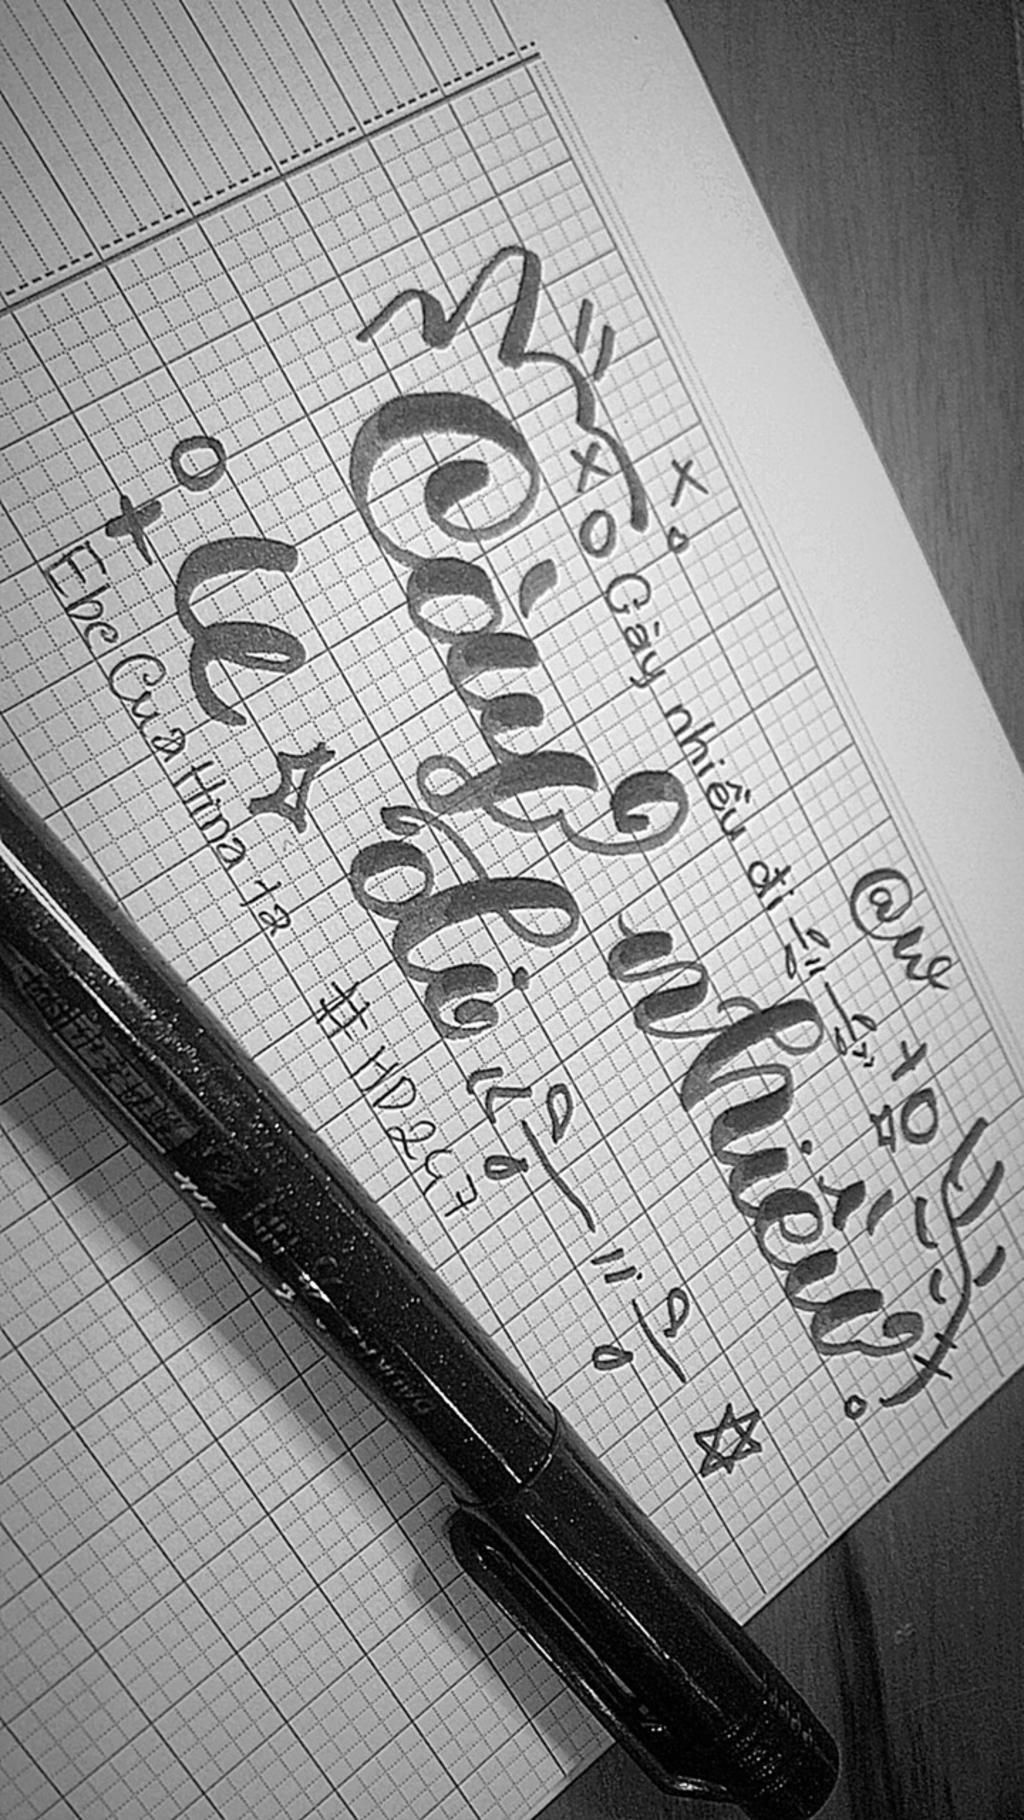 @ue
Gáy nhiều đi
Gáy nhiều
đi
ue
Ebe Cua Hina ta
#HD247